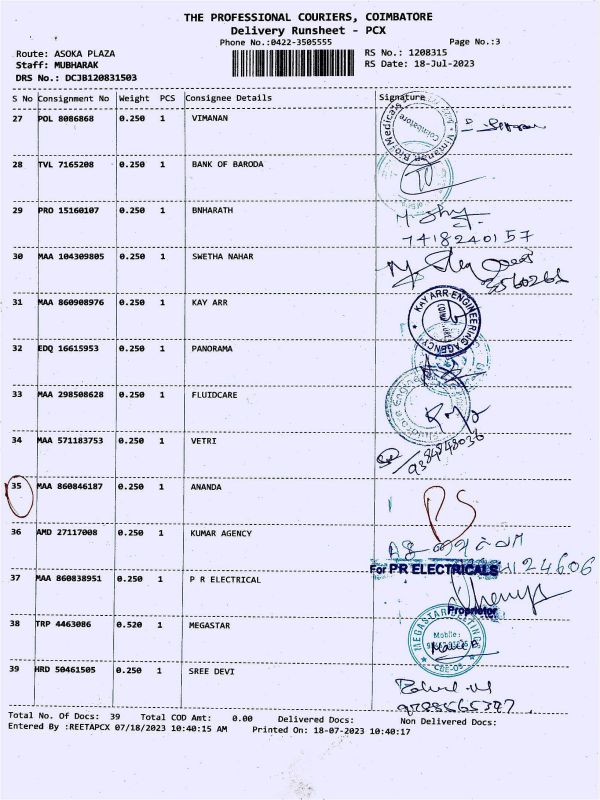 THE PROFESSIONAL COURIERS, COIMBATORE
Delivery Runsheet - PCX
Phone No.:0422-3505555 Page No.:3
Route: ASOKA PLAZA RS No.: 1208315
Staff: MUBHARAK RS Date: 18-Jul-2023
DRS No.: DCJB120831503
S No Consignment No Weight PCS Consignee Details Signature
27 POL 8086868 0.250 1 VIMANAN
28 TVL 7165208 0.250 1 BANK OF BARODA
29 PRO 15160107 0.250 1 BNHARATH
7418240157
30 MAA 104309805 0.250 1 SWETHA NAHAR
31 MAA 860908976 0.250 1 KAY ARR
KAY ARR ENGINEERING AGENCY
32 EDQ 16615953 0.250 1 PANORAMA
33 MAA 298508628 0.250 1 FLUIDCARE
34 MAA 571183753 0.250 1 VETRI
9384848036
35 MAA 860846187 0.250 1 ANANDA
RS
36 AMD 27117008 0.250 1 KUMAR AGENCY
For PR ELECTRICALS
37 MAA 860838951 0.250 1 P R ELECTRICAL
Proprietor
38 TRP 4463086 0.520 1 MEGASTAR
Mobile:
39 HRD 50461505 0.250 1 SREE DEVI
Total No. Of Docs: 39 Total COD Amt: 0.00 Delivered Docs: Non Delivered Docs:
Entered By :REETAPCX 07/18/2023 10:40:15 AM Printed On: 18-07-2023 10:40:17